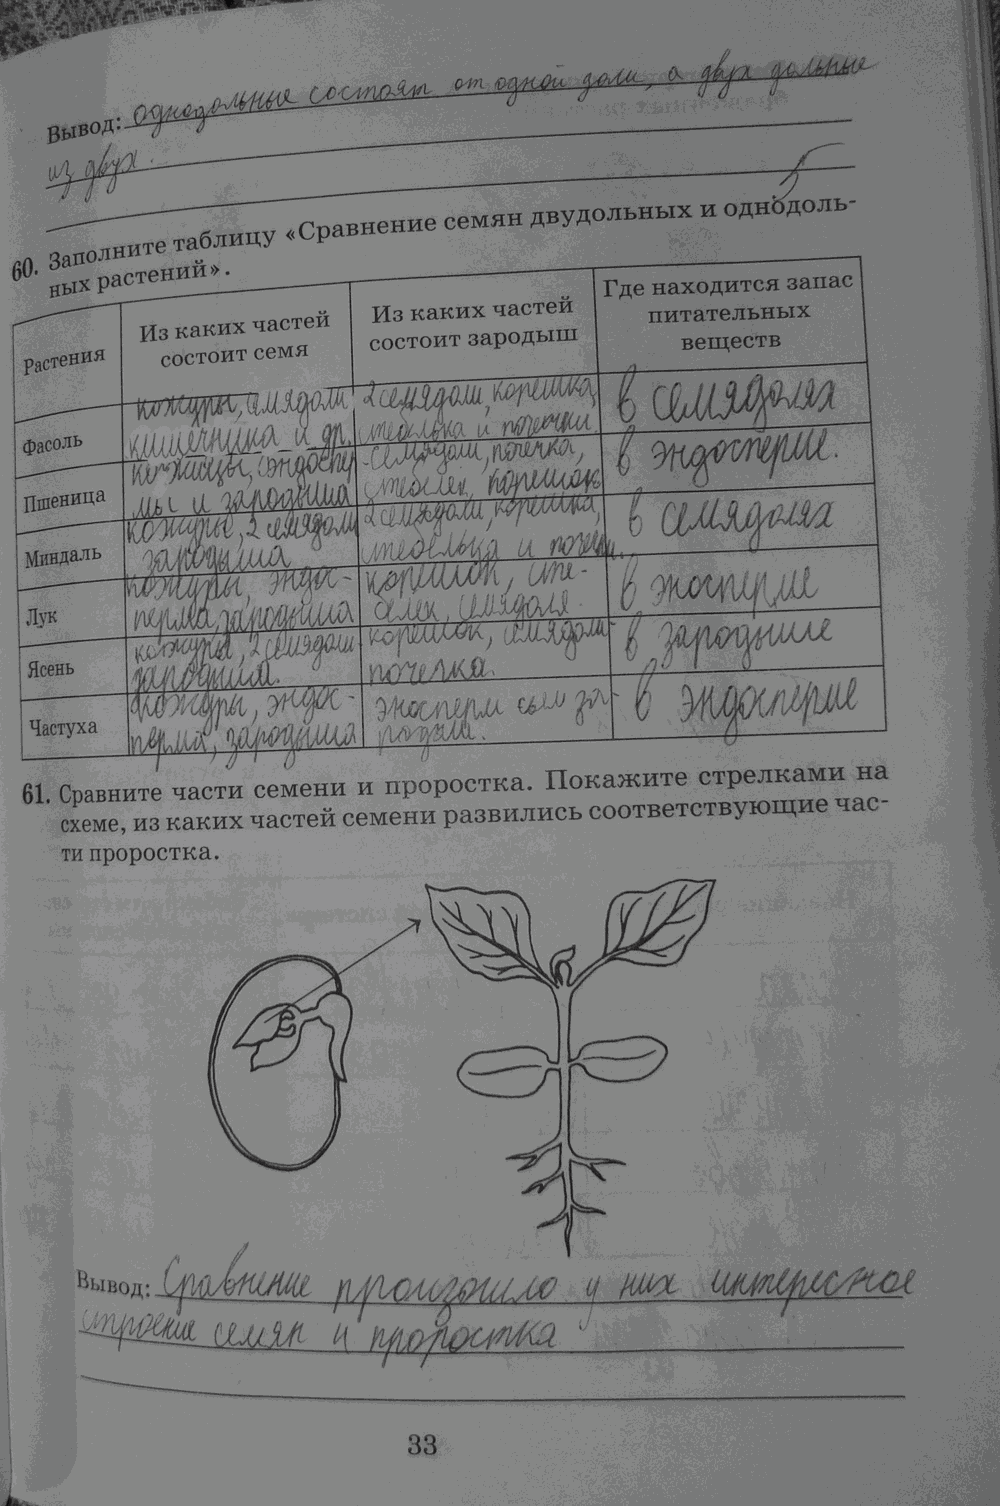 Вывод: однодольные состоят от одной доли, а двух дольные
из двух.
5
60. Заполните таблицу «Сравнение семян двудольных и однодоль-
ных растений».
Растения
Из каких частей
состоит семя
Из каких частей
состоит зародыш
Где находится запас
питательных
веществ
Фасоль
кожуры, семядоли
кишечника и др.
2 семядоли, корешка,
стебелька и почечки.
в семядолях
Пшеница
кожицы, эндоспер-
мы и зародыша
семядоли, почечка,
стебелек, корешок
в эндосперме.
Миндаль
кожуры, 2 семядоли
зародыша
2 семядоли, корешка,
стебелька и почечки.
в семядолях
Лук
кожуры, эндос-
перма, зародыша
корешок, сте-
белек, семядоля.
в эносперме
Ясень
кожуры, 2 семядоли
зародыша.
корешок, семядоли
почечка.
в зародыше
Частуха
кожуры, эндос-
перма, зародыша
эносперм за-
родыш.
в эндосперме
61. Сравните части семени и проростка. Покажите стрелками на
схеме, из каких частей семени развились соответствующие час-
ти проростка.
Вывод: Сравнение произошло у них интересное
строение семян и проростка
33